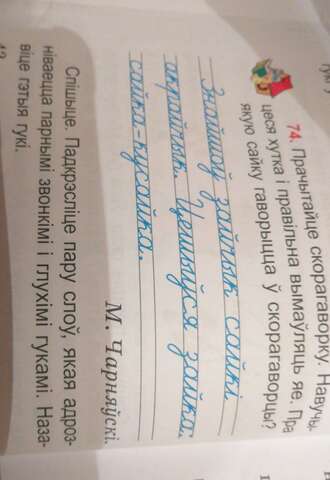 74. Прачытайце скорагаворку. Навучы-
цеся хутка і правільна вымаўляць яе. Пра
якую сайку гаворыцца ў скорагаворцы?
Знайшоў зайчык сайкі
акрайчык. Цешыўся зайка:
сайка-кусайка.
М. Чарняўскі.
Спішыце. Падкрэсліце пару слоў, якая адроз-
ніваецца парнымі звонкімі і глухімі гукамі. Наза-
віце гэтыя гукі.